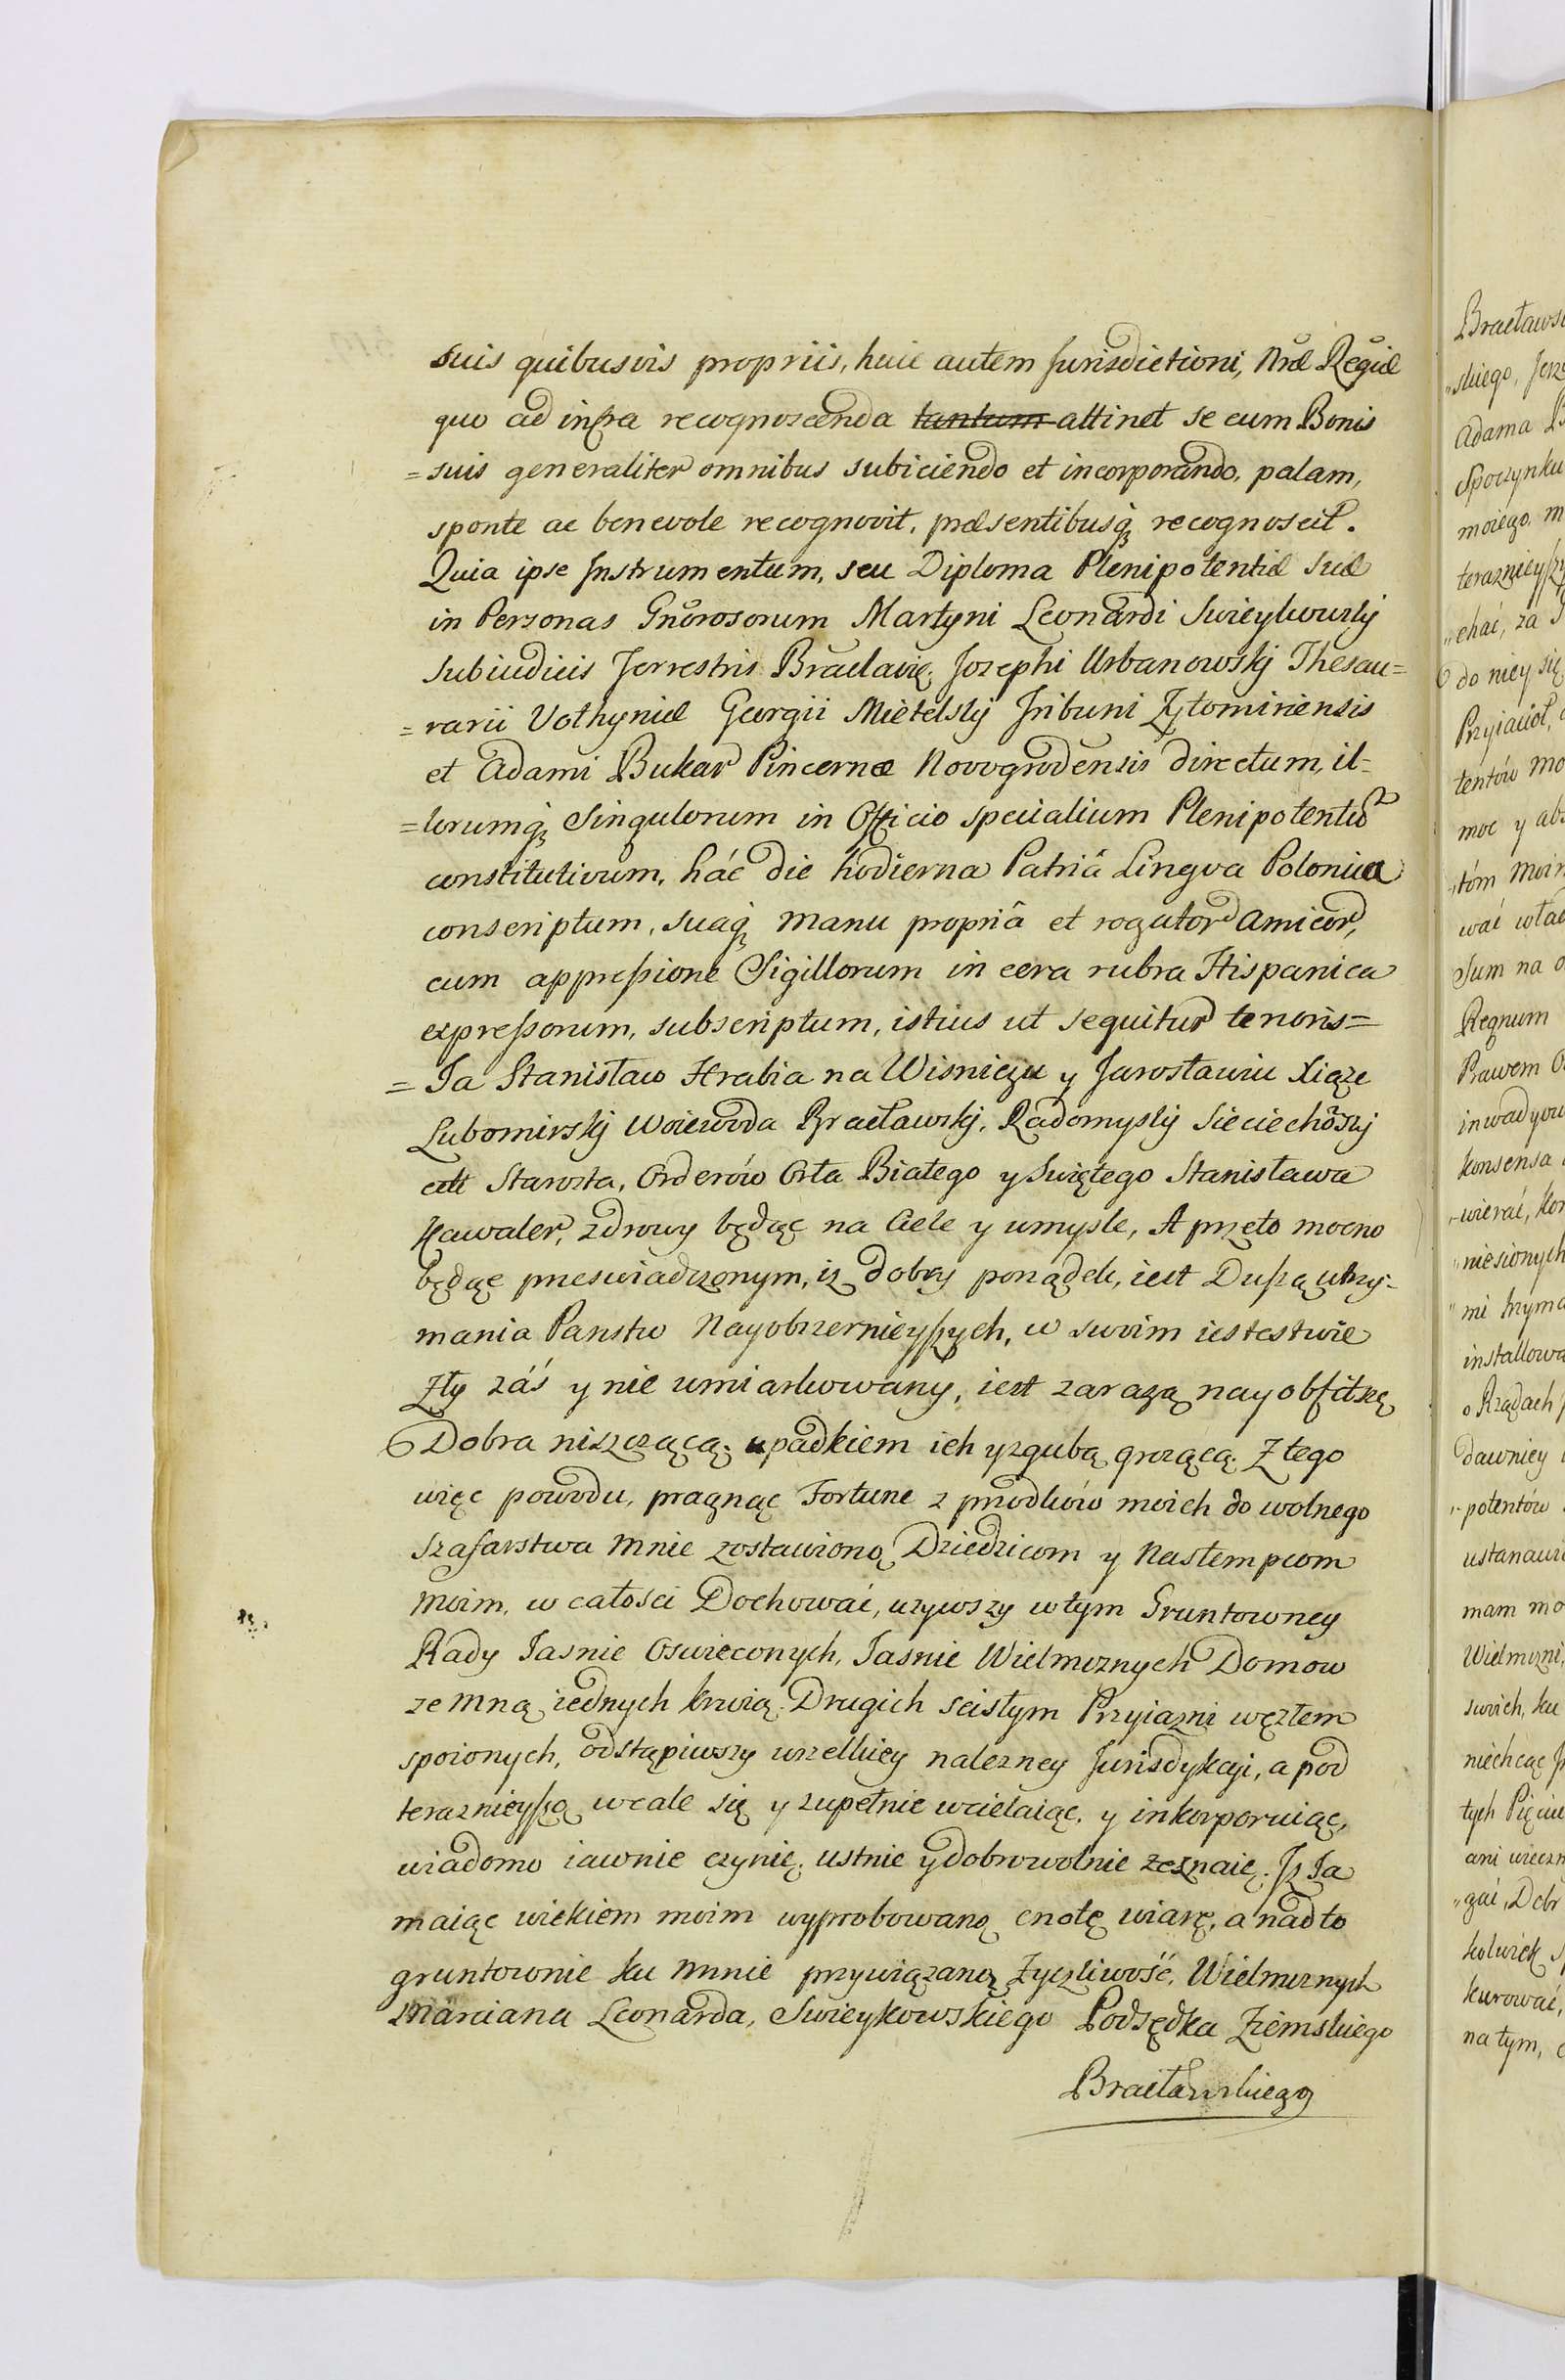 suis quibusvis propriis, huic autem Jurisdictioni, Nræ Regiæ
quo ad infra recognoscenda tantum attinet se cum Bonis
=suis generaliter omnibus subiciendo et incorporando, palam,
sponte ac benevole recognovit, præsentibusq́ recognoscit.
Quia ipse Instrumentum, seu Diploma Plenipotentiæ suæ
in Personas Gnörosorum Martyni Leonardi Swieykowskj
Subiudicis Terrestris Braclavię, Josephi Urbanowskj Thesau=
=rarii Volhyniæ Georgii Mietelskj Tribuni Zytomiriensis
et Adami Bukar Pincernæ Novogrodensis directum, il=
=lorumq́ Singulorum in Officio specialium Plenipotentü
constitutivum, hác die hodierna Patriâ Lingva Polonica
conscriptum, suaq́ manu propriâ et rogator Amicor,
cum appreßione Sigillorum in cera rubra Hispanica
expreßorum, subscriptum, istius ut sequitur tenoris=
=Ja Stanisław Hrabia na Wisniczu y Jarosławiu Xiąże
Lubomirskj Woiewoda Bracławskj, Radomyslj Sieciechöskj
ett Starosta, Orderów Orła Białego y Swiętego Stanisława
Kawaler, zdrowy będąc na Ciele y umysle, A przeto mocno
będąc przeswiadczonym, iz dobry porządek, iest Duszą utrzy-
mania Panstw Nayobszernieyszych, w swoim iestestwie
Zły záś y nie umiarkowany, iest zarazą nayobfitszę
Dobra niszczącą, upadkiem ich y zgubą grozącą. Z tego
więc powodu, pragnąc Fortune z przodków moich do wolnego
Szafarstwa mnie zostawioną Dziedzicom y Nastempcom
moim, w całości Dochowáć, uzywszy w tym Gruntowney
Rady Jasnie Oswieconych, Jasnie Wielmoznych Domow
ze mną iednych krwią, Drugich scisłym Przyiazni węzłem
spoionych, odstąpiwszy wszelkiey nalezney Jurisdykcyi, a pod
teraznieyszą wcale się y zupełnie wcielaiąc, y inkorporuiąc,
wiadomo iawnie czynię, ustnie y dobrowolnie zeznaię. Jz Ja
maiąc wiekiem moim wyprobowaną cnotę wiarę, a nadto
gruntownie ku mnie przywiązaną Zyczliwość, Wielmoznych
Marciana Leonarda, Swieykowskiego Podsędka Ziemskiego
Bracławskiego
Bracławs
"skiego, Jerz
Adama B
Spoczynku
moiego, m
teraznieyszy
"chać, za
do niey się
Przyiaciół,
tentów mo
moc y ab
tóm Moim
wać wład
sum na o
Regnum
Prawem
inwadyow
konsensa
wierać, kon
niesionych
"mi trzyma
installowa
o Rządach
dawniey
"potentów
ustanawi
mam mo
Wielmozni,
swoich, ku
niechcąc
tych Pięciu
ani wieczn
"gać, Dobr
kolwiek
kurować,
na tym,